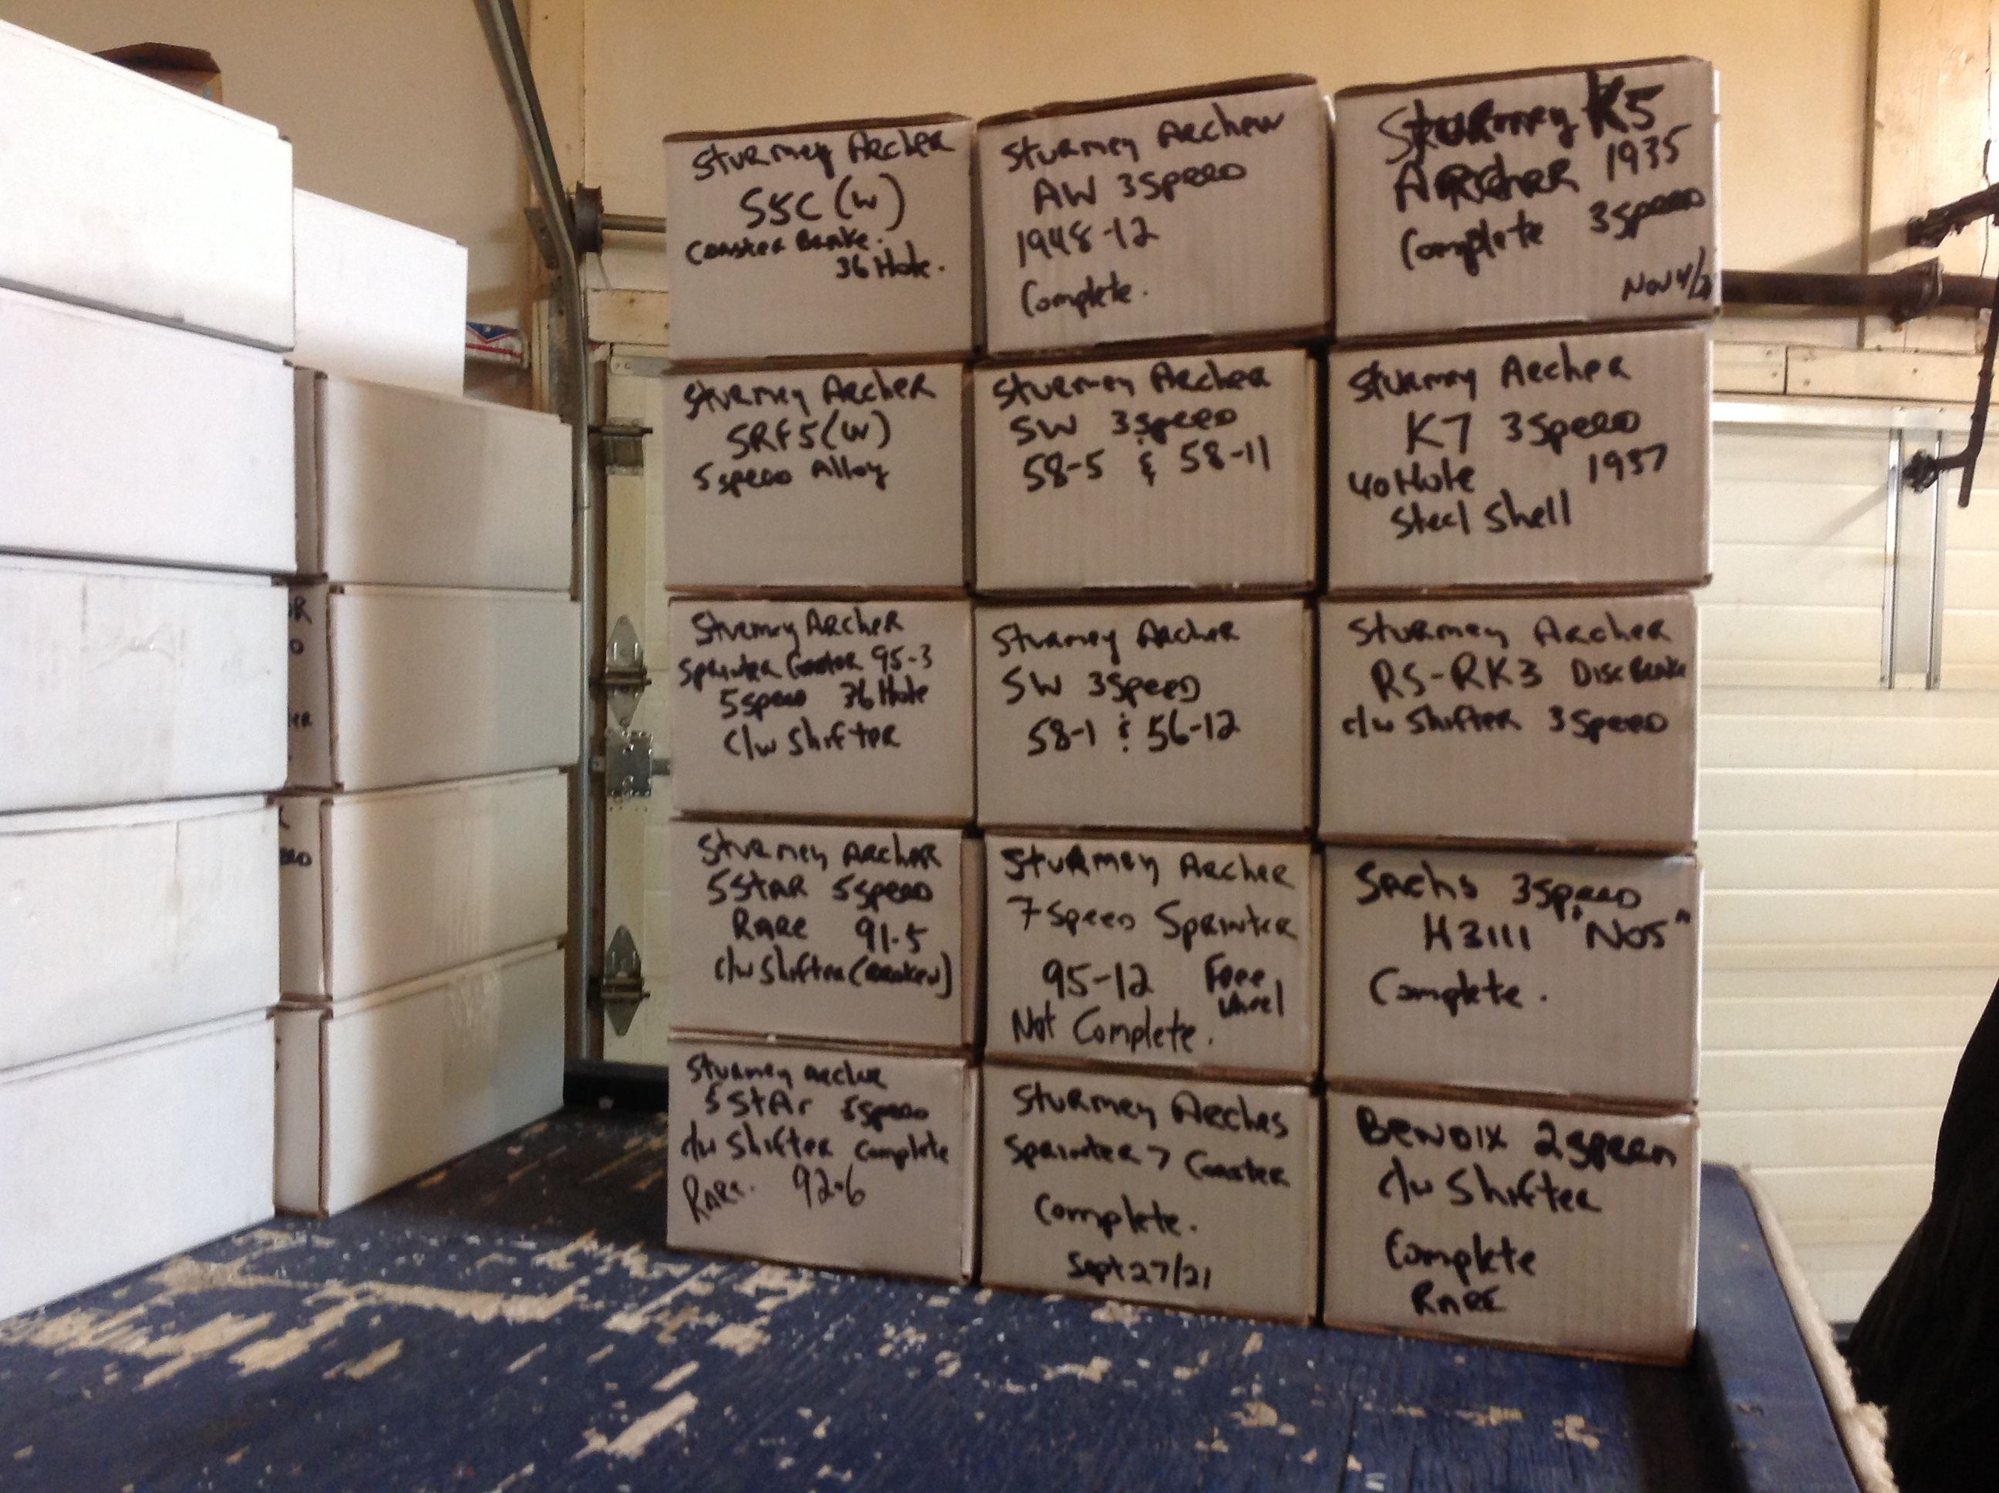 Sturmey Archer
S5C (W)
Coaster Brake.
36 Hole.
Sturmey Archer
AW 3 Speed
1948-12
Complete.
Sturmey K5
Archer 1935
Complete 3 Speed
Nov 4/
Sturmey Archer
SRF5(W)
5 speed Alloy
Sturmey Archer
SW 3 Speed
58-5 & 58-11
Sturmey Archer
K7 3 Speed
40 Hole 1937
Steel Shell
Sturmey Archer
Sprinter Coaster 95-3
5 speed 36 Hole
c/w Shifter
Sturmey Archer
SW 3 Speed
58-1 & 56-12
Sturmey Archer
RS-RK3 Disc Brake
c/w Shifter 3 Speed
Sturmey Archer
5 Star 5 Speed
Rare 91-5
c/w Shifter (Broken)
Sturmey Archer
7 Speed Sprinter
95-12 Free
Wheel
Not Complete.
Sachs 3 Speed
H3111 "NOS"
Complete.
Sturmey Archer
5 Star 5 Speed
c/w Shifter Complete
Rare. 92-6
Sturmey Archer
Sprinter 7 Coaster
Complete.
Sept 27/21
Bendix 2 Speed
c/w Shifter
Complete
Rare